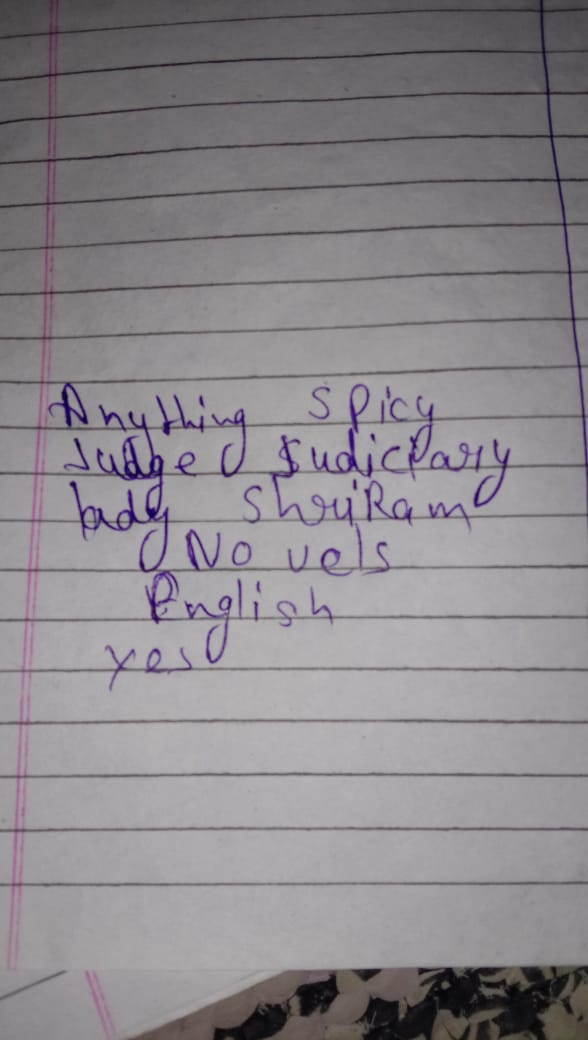 Anything Spicy
Judge Judiciary
lady ShriRam
No vels
English
yes